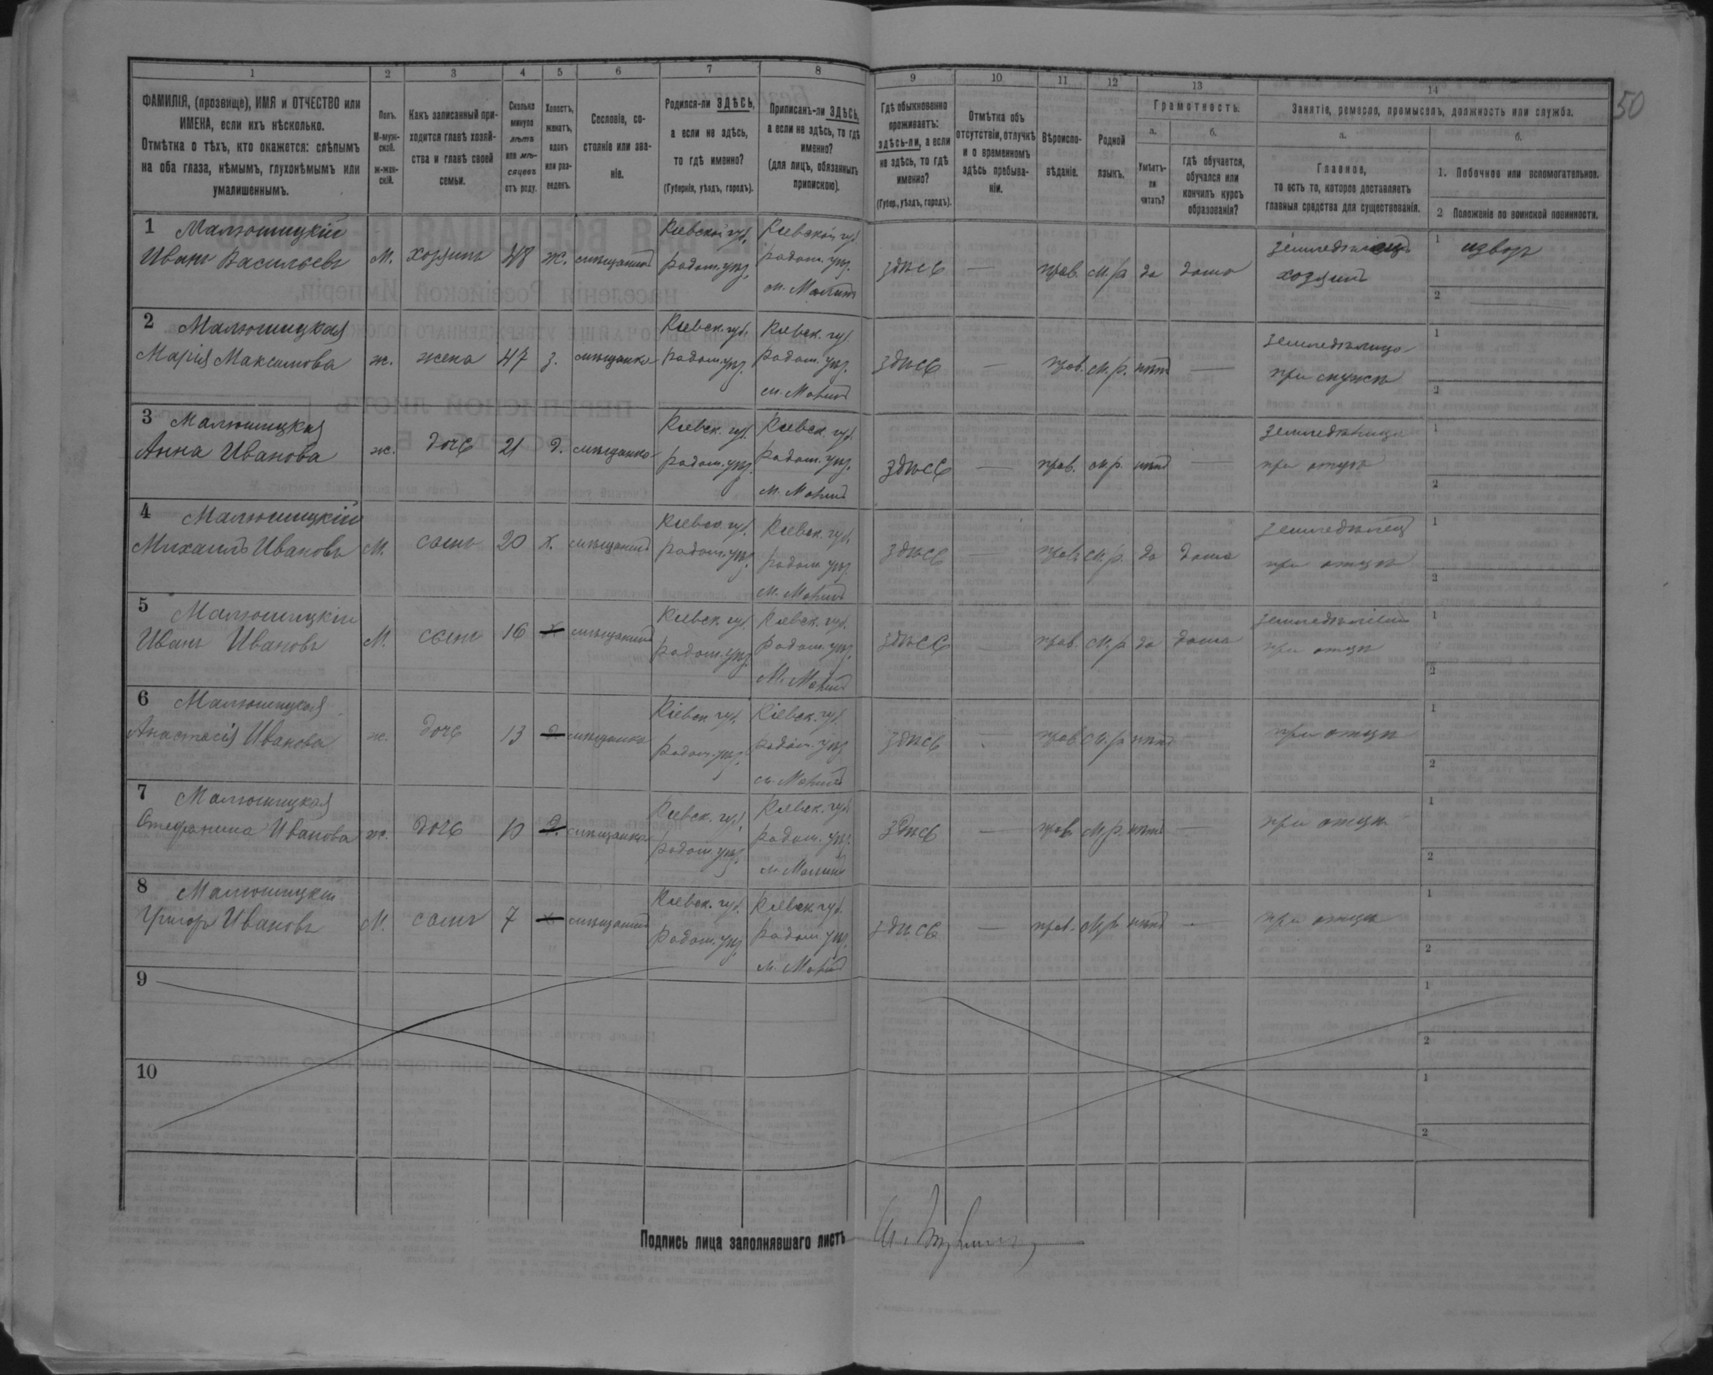 50
1 2 3 4 5 6 7 8 9 10 11 12 13 14
ФАМИЛІЯ, (прозвище), ИМЯ и ОТЧЕСТВО или ИМЕНА, если ихъ нѣсколько.
Отмѣтка о тѣхъ, кто окажется: слѣпымъ на оба глаза, нѣмымъ, глухонѣмымъ или умалишеннымъ.
Полъ. М-мужской. ж-женскій.
Какъ записанный приходится главѣ хозяйства и главѣ своей семьи.
Сколько минуло лѣтъ или мѣсяцевъ отъ роду.
Холостъ, женатъ, вдовъ или разведенъ.
Сословіе, состояніе или званіе.
Родился-ли ЗДѢСЬ, а если не здѣсь, то гдѣ именно?
(Губернія, уѣздъ, городъ).
Приписанъ-ли ЗДѢСЬ, а если не здѣсь, то гдѣ именно?
(для лицъ, обязанныхъ припискою).
Гдѣ обыкновенно проживаетъ: здѣсь-ли, а если не здѣсь, то гдѣ именно?
(Губер., уѣздъ, городъ).
Отмѣтка объ отсутствіи, отлучкѣ и о временномъ здѣсь пребываніи.
Вѣроисповѣданіе.
Родной языкъ.
Грамотность.
а. б.
Умѣетъ-ли читать?
гдѣ обучается, обучался или кончилъ курсъ образованія?
Занятіе, ремесло, промыселъ, должность или служба.
а. б.
Главное, то есть то, которое доставляетъ главныя средства для существованія.
1. Побочное или вспомогательное.
2 Положеніе по воинской повинности.
1 Малюшицкій Киевской губ. Киевской губ. земледѣлецъ 1 извоз
Иванъ Васильевъ М. хозяинъ 48 ж. мѣщанинъ радом. уѣз. радом. уѣз. здѣсь — прав. м.р. да дома хозяинъ
м. Малинъ 2
2 Малюшицкая Киевск. губ. Киевск. губ. 1
Марія Максимова ж. жена 47 з. мѣщанка радом. уѣз. радом. уѣз. здѣсь — прав. м.р. нѣтъ — при мужѣ
м. Малинъ 2
3 Малюшицкая Киевск. губ. Киевск. губ. 1
Анна Иванова ж. дочь 21 д. мѣщанка радом. уѣз. радом. уѣз. здѣсь — прав. м.р. нѣтъ — при отцѣ
м. Малинъ 2
4 Малюшицкій Киевск. губ. Киевск. губ. земледѣлец 1
Михаилъ Ивановъ М. сынъ 20 х. мѣщанинъ радом. уѣз. радом. уѣз. здѣсь — прав. м.р. да дома при отцѣ
м. Малинъ 2
5 Малюшицкій Киевск. губ. Киевск. губ. 1
Иванъ Ивановъ М. сынъ 16 х мѣщанинъ радом. уѣз. радом. уѣз. здѣсь прав. м.р. да дома при отцѣ
м. Малинъ 2
6 Малюшицкая Кіевск. губ. Кіевск. губ. 1
Анастасія Иванова ж. дочь 13 д. мѣщанка радом. уѣз. радом. уѣз. здѣсь прав. м.р. нѣтъ — при отцѣ
м. Малинъ 2
7 Малюшицкая Киевск. губ. Киевск. губ. 1
Стефанина Иванова ж. дочь 10 д. мѣщанка радом. уѣз. радом. уѣз. здѣсь — прав. м.р. нѣтъ — при отцѣ
м. Малинъ 2
8 Малюшицкій Киевск. губ. Киевск. губ. 1
Григор Ивановъ М. сынъ 7 х мѣщанинъ радом. уѣз. радом. уѣз. здѣсь — прав. м.р. нѣтъ — при отцѣ
м. Малинъ 2
9 1
2
10 1
2
Подпись лица заполнявшаго листъ